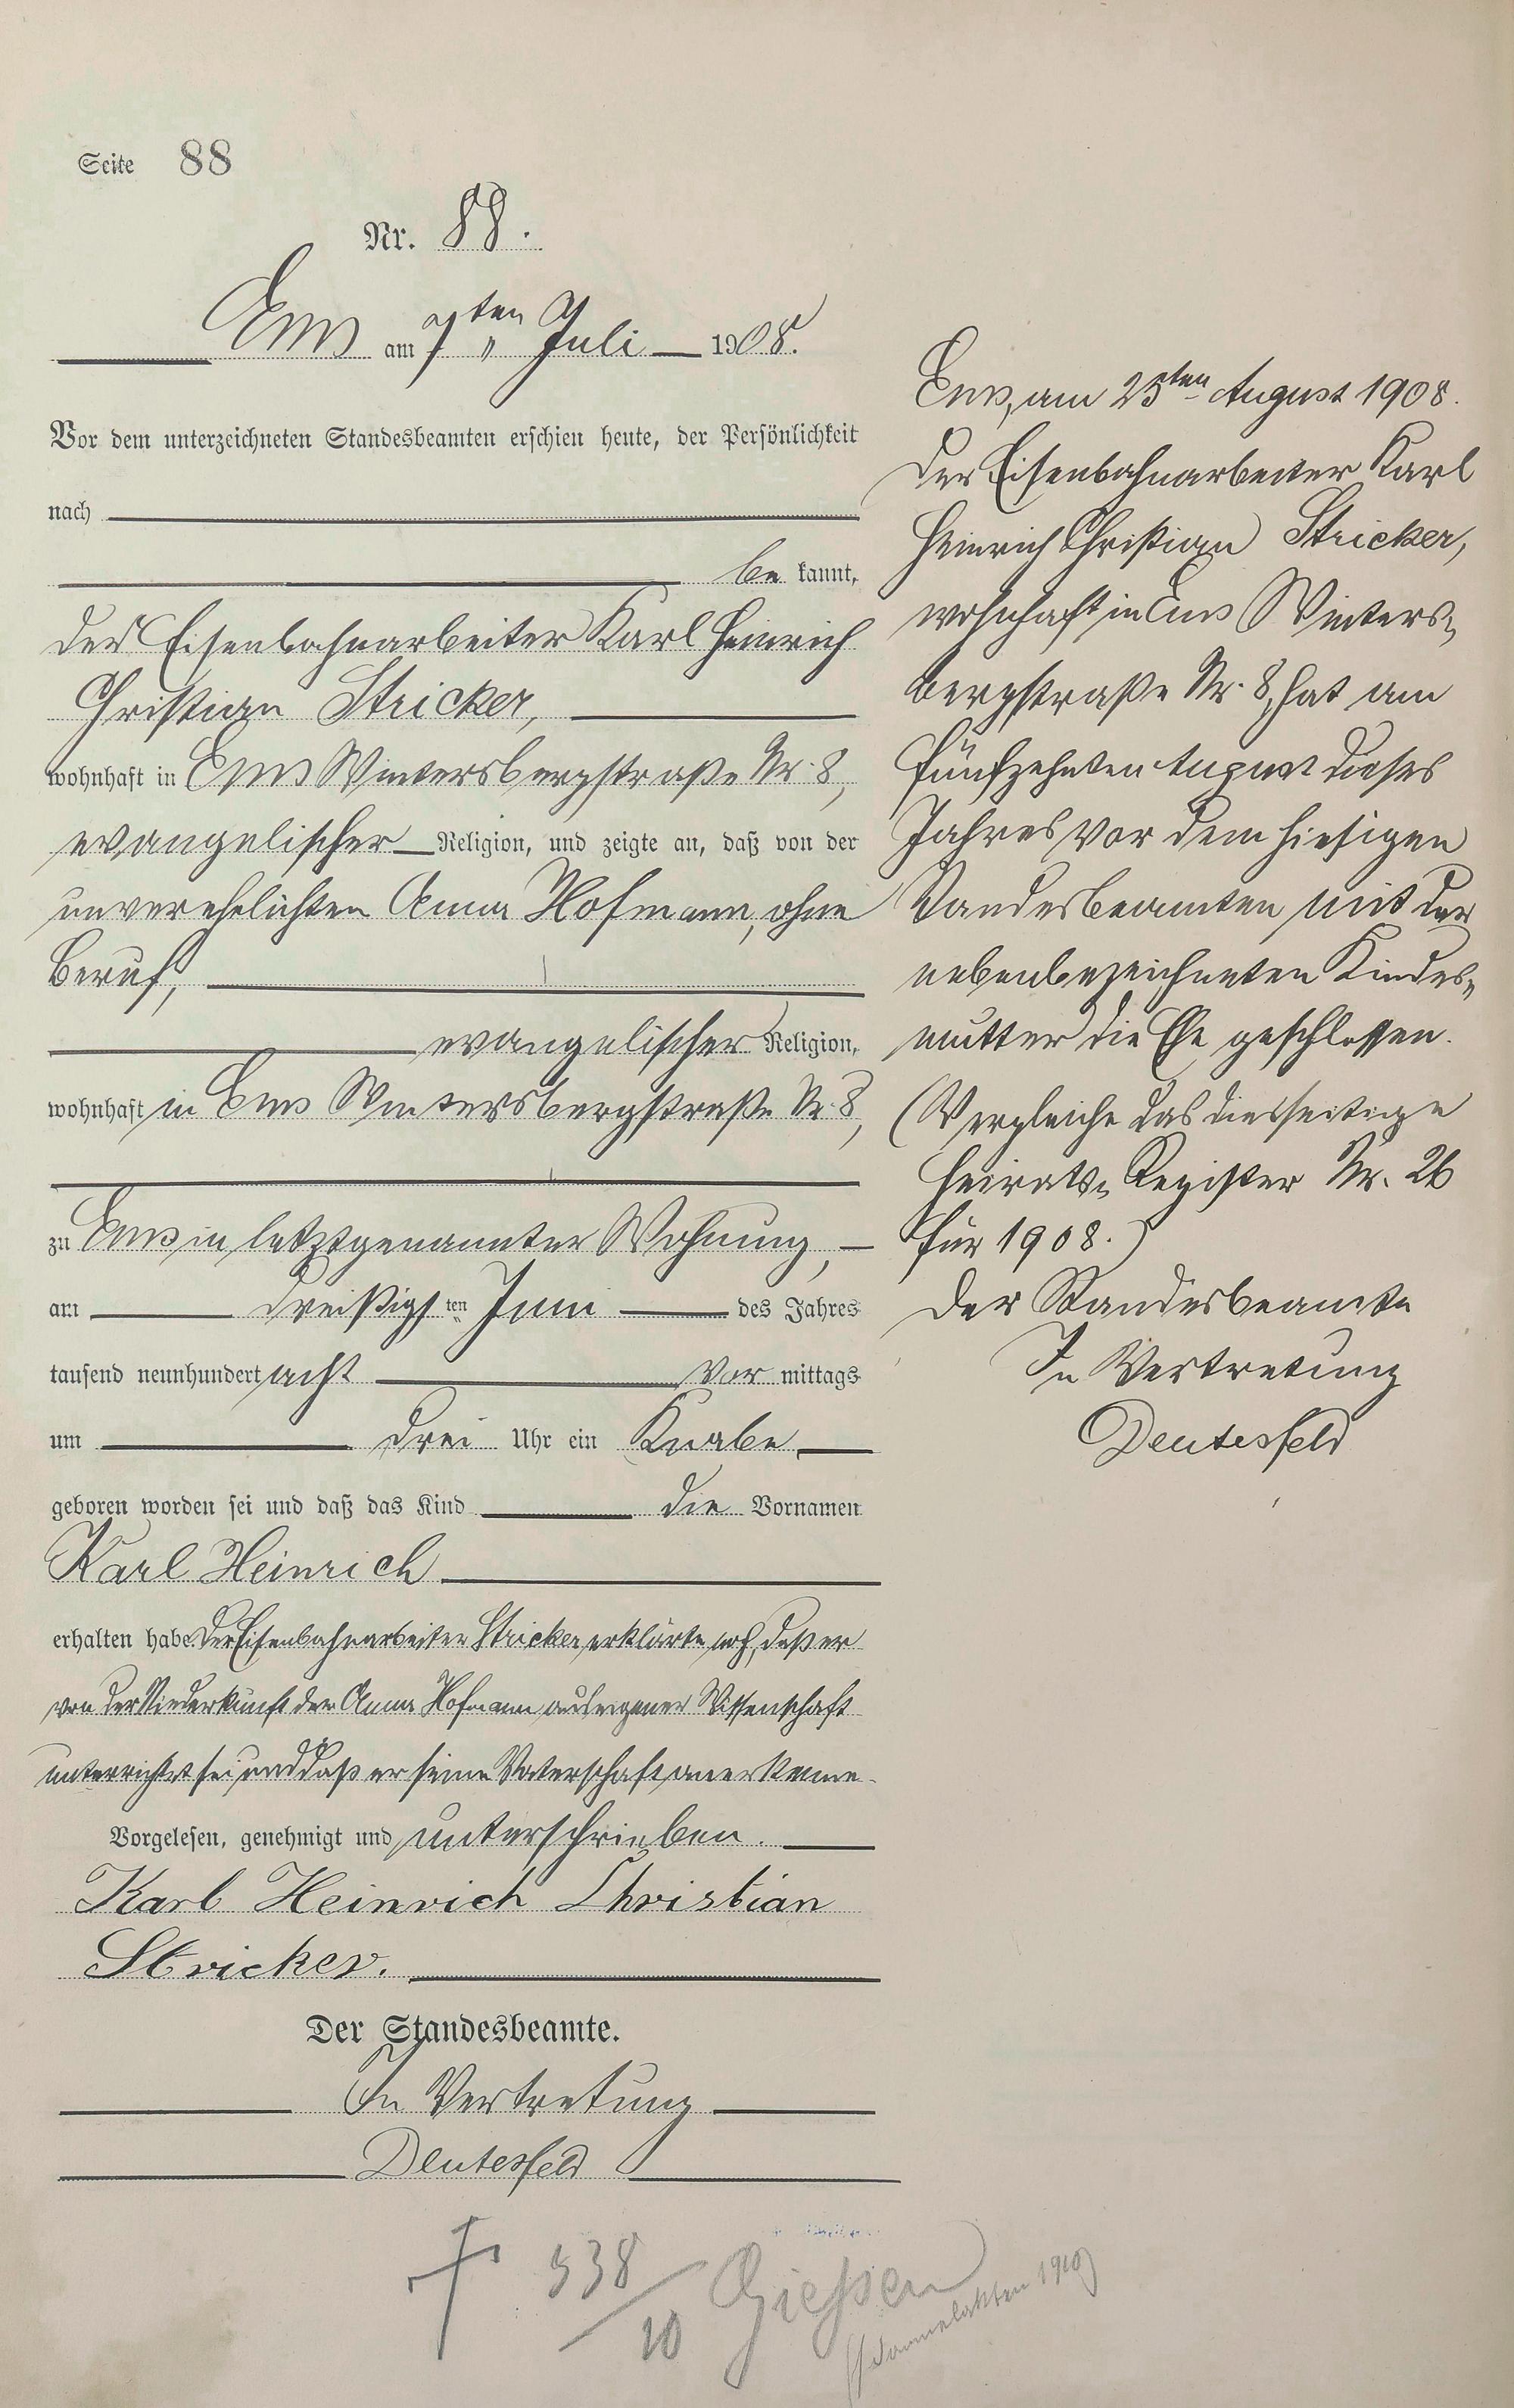 Seite 88
Nr. 88.
Ems am 7ten Juli 1908.
Vor dem unterzeichneten Standesbeamten erschien heute, der Persönlichkeit
nach
bekannt,
der Eisenbahnarbeiter Karl Heinrich
Christian Stricker,
wohnhaft in Ems Wintersbergstraße Nr. 8,
evangelischer Religion, und zeigte an, daß von der
unverehelichten Anna Hofmann, ohne
Beruf,
evangelischer Religion,
wohnhaft in Ems Wintersbergstraße Nr. 8,
zu Ems in letztgenannter Wohnung,
am dreißigsten Juni des Jahres
tausend neunhundert acht Vormittags
um drei Uhr ein Knabe
geboren worden sei und daß das Kind die Vornamen
Karl Heinrich
erhalten habe. Der Eisenbahnarbeiter Stricker erklärte noch, daß er
von der Niederkunft der Anna Hofmann aus eigener Wissenschaft
unterrichtet sei und daß er seine Vaterschaft anerkenne.
Vorgelesen, genehmigt und unterschrieben.
Karl Heinrich Christian
Stricker.
Der Standesbeamte.
In Vertretung
Deutesfeld
† 538/10 Giessen
(Sammelakten 1910)
Ems, am 25ten August 1908.
Der Eisenbahnarbeiter Karl
Heinrich Christian Stricker,
wohnhaft in Ems Winters-
bergstraße Nr. 8, hat am
fünfzehnten August dieses
Jahres vor dem hiesigen
Standesbeamten mit der
nebenbezeichneten Kindes-
mutter die Ehe geschlossen.
(Vergleiche das diesseitige
Heirats-Register Nr. 26
für 1908.)
Der Standesbeamte
In Vertretung
Deutesfeld